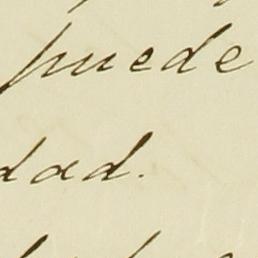 puede
dad.